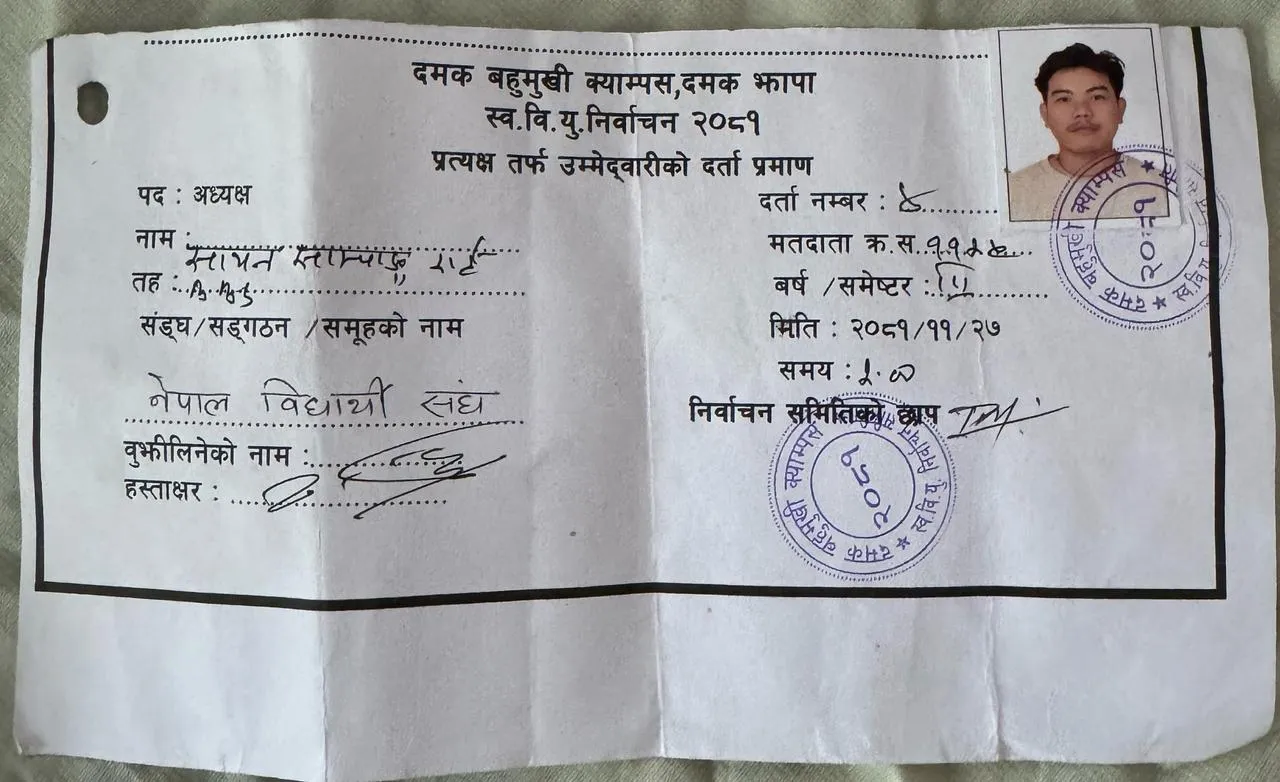 दमक बहुमुखी क्याम्पस,दमक झापा
स्व.वि.यु.निर्वाचन २०८१
प्रत्यक्ष तर्फ उम्मेद्वारीको दर्ता प्रमाण
पद : अध्यक्ष
दर्ता नम्बर : ४
नाम : राई
मतदाता क्र.स.
तह :
बर्ष /समेष्टर : III
संङ्घ/सङ्गठन /समूहको नाम
मिति : २०८१/११/२७
समय :
नेपाल विद्यार्थी संघ
निर्वाचन समितिको छाप
वुझीलिनेको नाम :
हस्ताक्षर :
दमक बहुमुखी क्याम्पस ★ स्व.वि.यु. निर्वाचन समिति
२०८१
दमक बहुमुखी क्याम्पस ★
२०८१